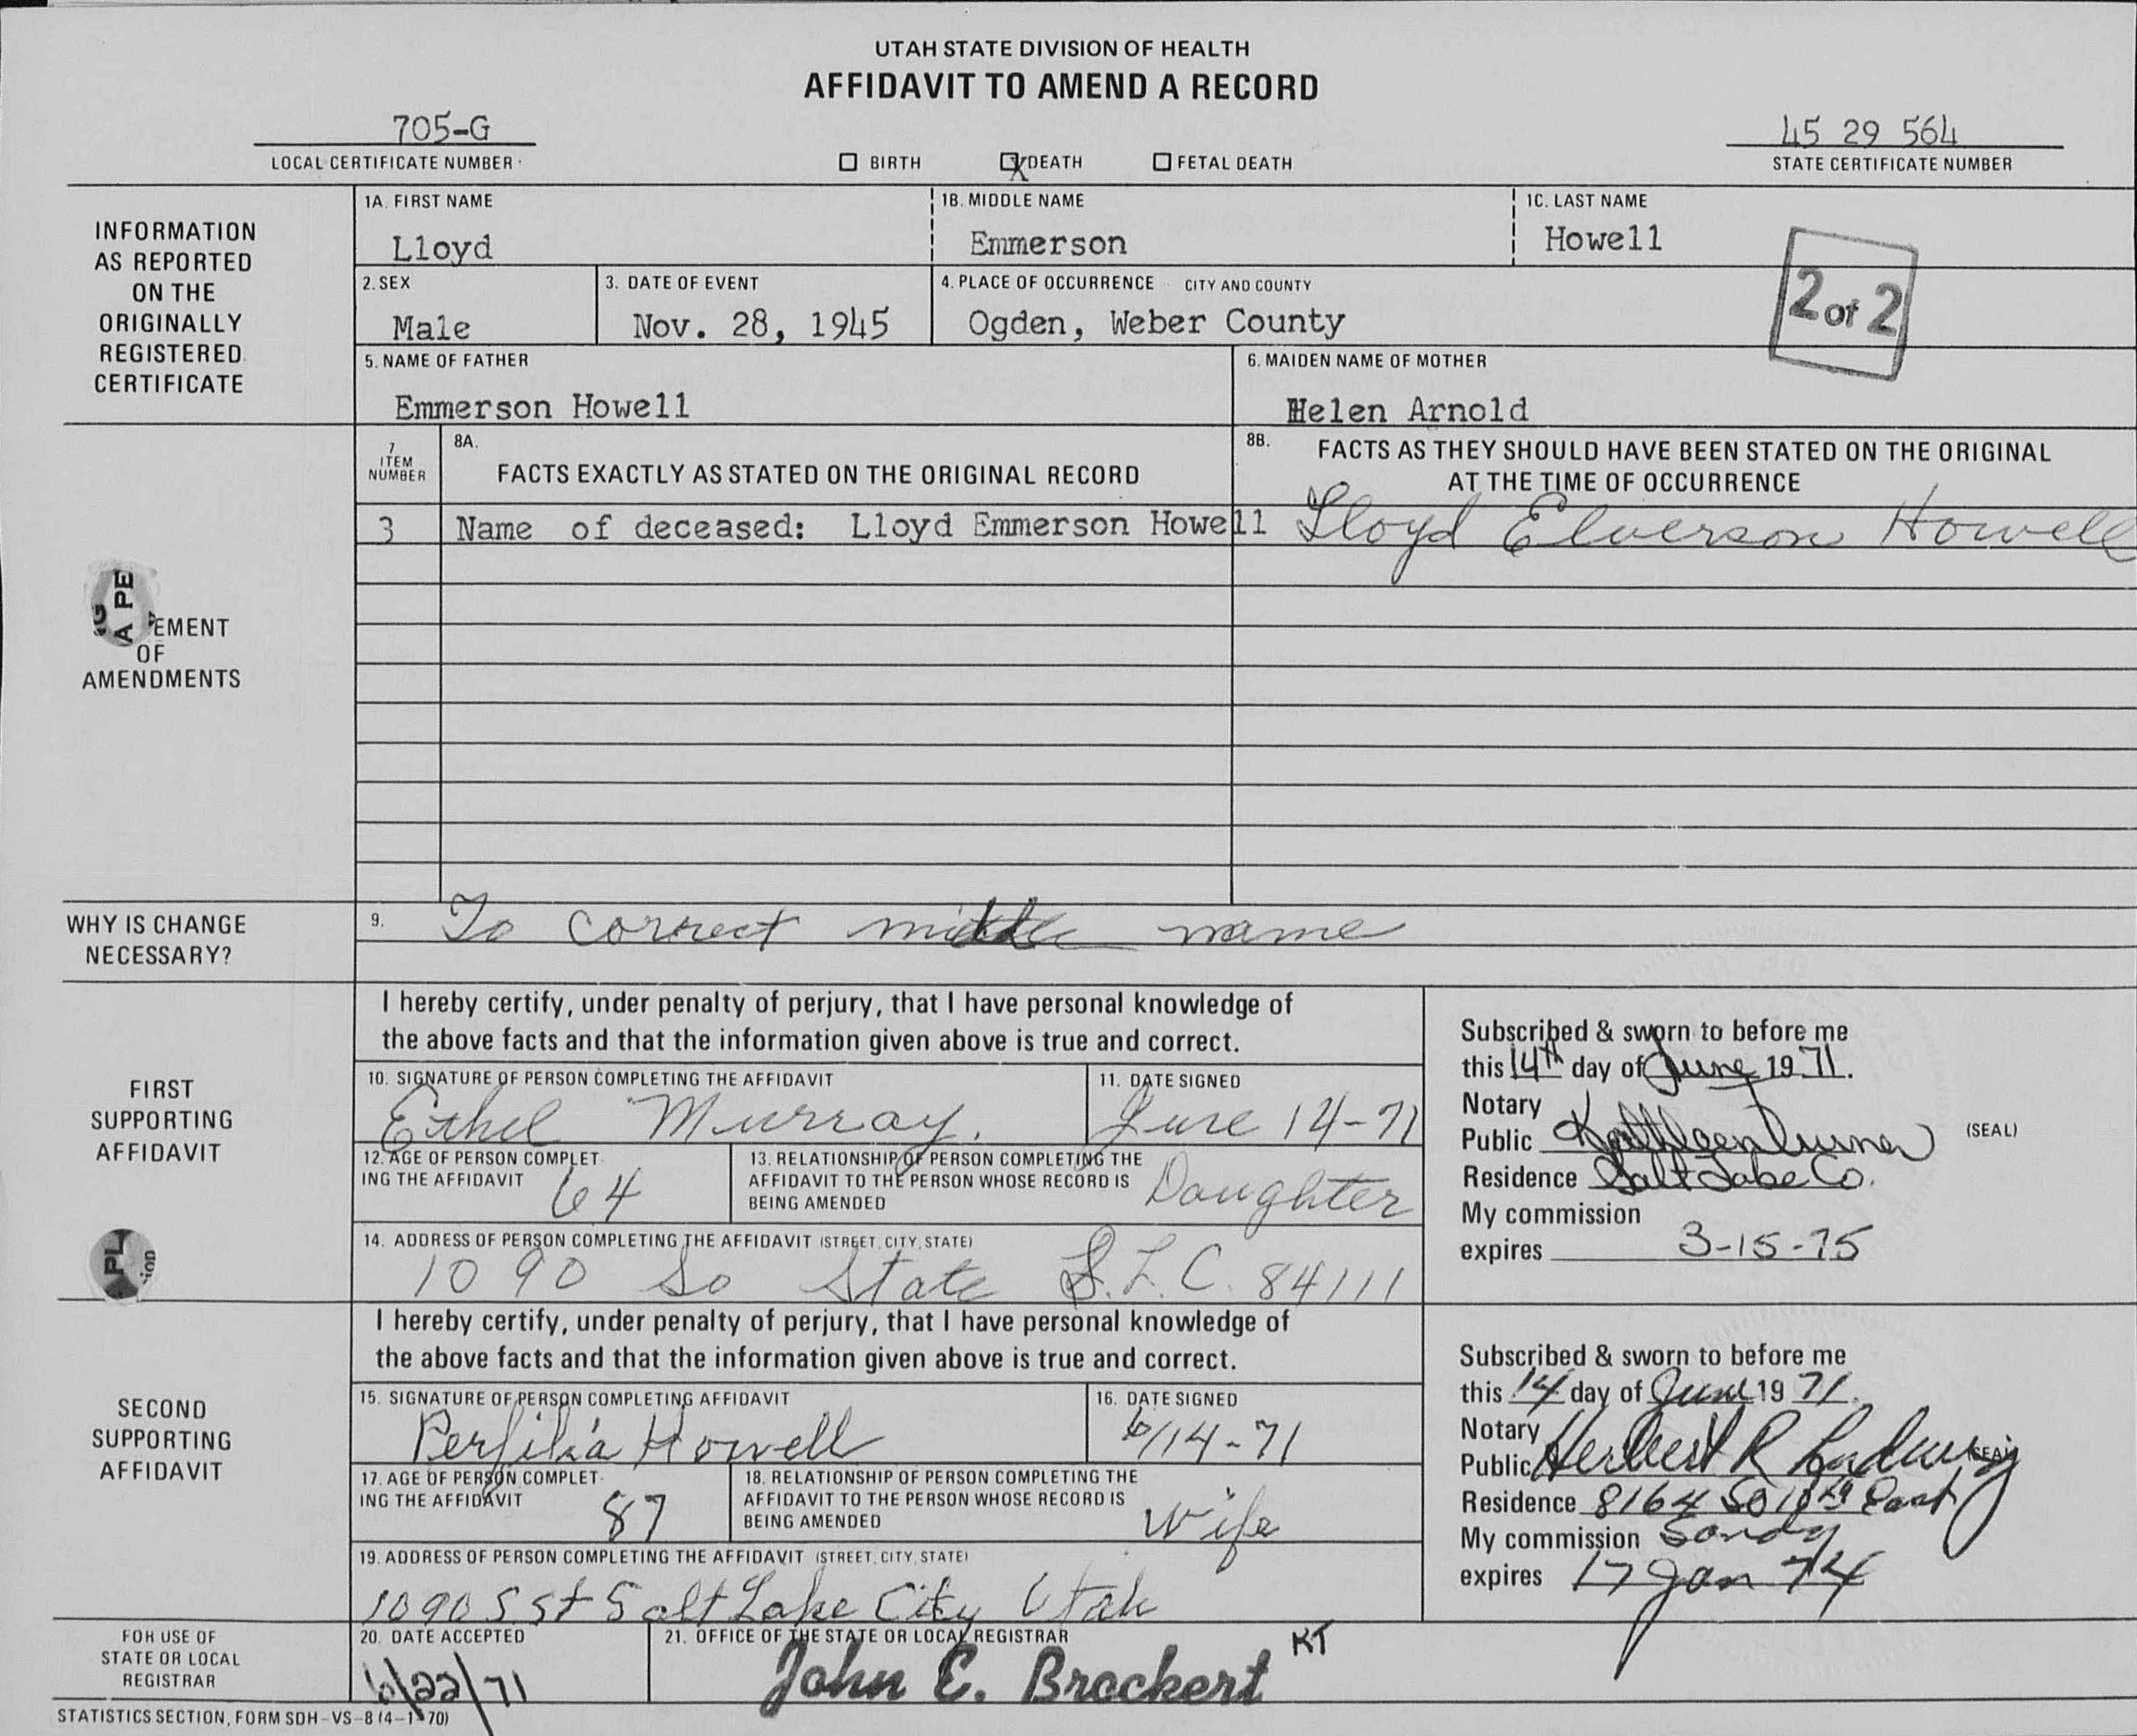 UTAH STATE DIVISION OF HEALTH
AFFIDAVIT TO AMEND A RECORD
705-G
LOCAL CERTIFICATE NUMBER
BIRTH X DEATH FETAL DEATH
45 29 564
STATE CERTIFICATE NUMBER
INFORMATION
AS REPORTED
ON THE
ORIGINALLY
REGISTERED
CERTIFICATE
1A. FIRST NAME 1B. MIDDLE NAME 1C. LAST NAME
Lloyd Emmerson Howell
2 of 2
2. SEX 3. DATE OF EVENT 4. PLACE OF OCCURRENCE CITY AND COUNTY
Male Nov. 28, 1945 Ogden, Weber County
5. NAME OF FATHER 6. MAIDEN NAME OF MOTHER
Emmerson Howell Helen Arnold
7 ITEM NUMBER
8A.
FACTS EXACTLY AS STATED ON THE ORIGINAL RECORD
8B.
FACTS AS THEY SHOULD HAVE BEEN STATED ON THE ORIGINAL
AT THE TIME OF OCCURRENCE
3 Name of deceased: Lloyd Emmerson Howell Lloyd Elverson Howell
A PE
EMENT
OF
AMENDMENTS
WHY IS CHANGE
NECESSARY?
9. To correct middle name
FIRST
SUPPORTING
AFFIDAVIT
I hereby certify, under penalty of perjury, that I have personal knowledge of
the above facts and that the information given above is true and correct.
10. SIGNATURE OF PERSON COMPLETING THE AFFIDAVIT 11. DATE SIGNED
Ethel Murray. June 14-71
12. AGE OF PERSON COMPLET-
ING THE AFFIDAVIT 64
13. RELATIONSHIP OF PERSON COMPLETING THE
AFFIDAVIT TO THE PERSON WHOSE RECORD IS
BEING AMENDED Daughter
14. ADDRESS OF PERSON COMPLETING THE AFFIDAVIT (STREET, CITY, STATE)
1090 So State S.L.C. 84111
Subscribed & sworn to before me
this 14th day of June 1971.
Notary
Public Kathleen Turner (SEAL)
Residence Salt Lake Co.
My commission
expires 3-15-75
PL
SECOND
SUPPORTING
AFFIDAVIT
I hereby certify, under penalty of perjury, that I have personal knowledge of
the above facts and that the information given above is true and correct.
15. SIGNATURE OF PERSON COMPLETING AFFIDAVIT 16. DATE SIGNED
Perfilia Howell 6/14-71
17. AGE OF PERSON COMPLET-
ING THE AFFIDAVIT 87
18. RELATIONSHIP OF PERSON COMPLETING THE
AFFIDAVIT TO THE PERSON WHOSE RECORD IS
BEING AMENDED Wife
19. ADDRESS OF PERSON COMPLETING THE AFFIDAVIT (STREET, CITY, STATE)
1090 S. St Salt Lake City Utah
Subscribed & sworn to before me
this 14 day of June 1971.
Notary
Public Herbert R
Residence 8164 So East
My commission Sandy
expires 17 Jan 74
FOR USE OF
STATE OR LOCAL
REGISTRAR
20. DATE ACCEPTED 21. OFFICE OF THE STATE OR LOCAL REGISTRAR
6/22/71 John E. Brockert KT
STATISTICS SECTION, FORM SDH-VS-8 (4-1-70)